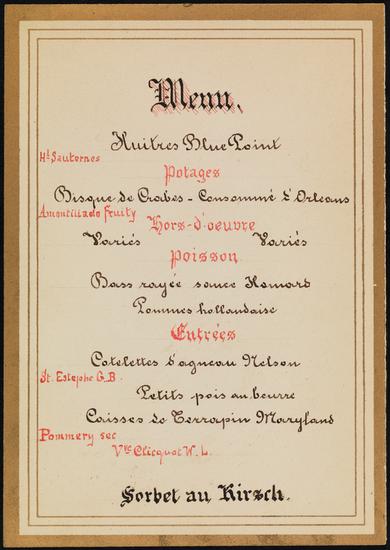 Menu.
Huitres Blue Point
Ht Sauternes
Potages
Bisque de Crabes - Consommé d'Orleans
Amontillado Fruity
Hors-d'oeuvre
Variés Variés
Poisson
Bass rayée sauce Homard
Pommes hollandaise
Entrées
Cotelettes d'agneau Nelson
St. Estephe G.B.
Petits pois au beurre
Caisses de Terrapin Maryland
Pommery sec
Vve Clicquot W.L.
Sorbet au Kirsch.